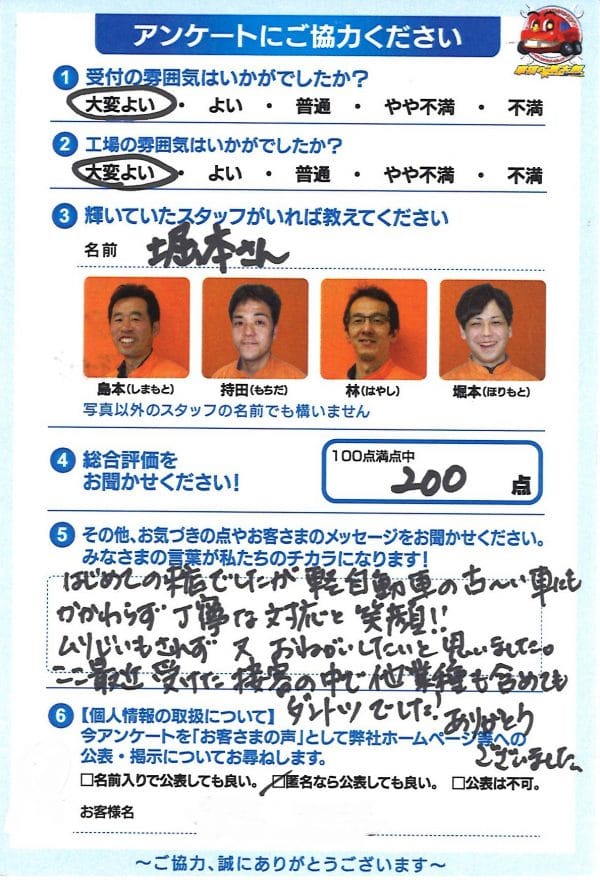 アンケートにご協力ください
1 受付の雰囲気はいかがでしたか?
大変よい ・ よい ・ 普通 ・ やや不満 ・ 不満
2 工場の雰囲気はいかがでしたか?
大変よい ・ よい ・ 普通 ・ やや不満 ・ 不満
3 輝いていたスタッフがいれば教えてください
名前 堀本さん
島本(しまもと) 持田(もちだ) 林(はやし) 堀本(ほりもと)
写真以外のスタッフの名前でも構いません
4 総合評価を
お聞かせください!
100点満点中
200 点
5 その他、お気づきの点やお客さまのメッセージをお聞かせください。
みなさまの言葉が私たちのチカラになります!
はじめての車検でしたが 軽自動車の古〜い車にも
かかわらず 丁寧な対応と 笑顔!!
ムリじいもされず 又 おねがいしたいと 思いました。
ここ最近 受けた 接客の中で 他業種も含めても
ダントツ でした! ありがとう
ございました。
6 【個人情報の取扱について】
今アンケートを「お客さまの声」として弊社ホームページ等への
公表・掲示についてお尋ねします。
□名前入りで公表しても良い。 ☑匿名なら公表しても良い。 □公表は不可。
お客様名
〜ご協力、誠にありがとうございます〜